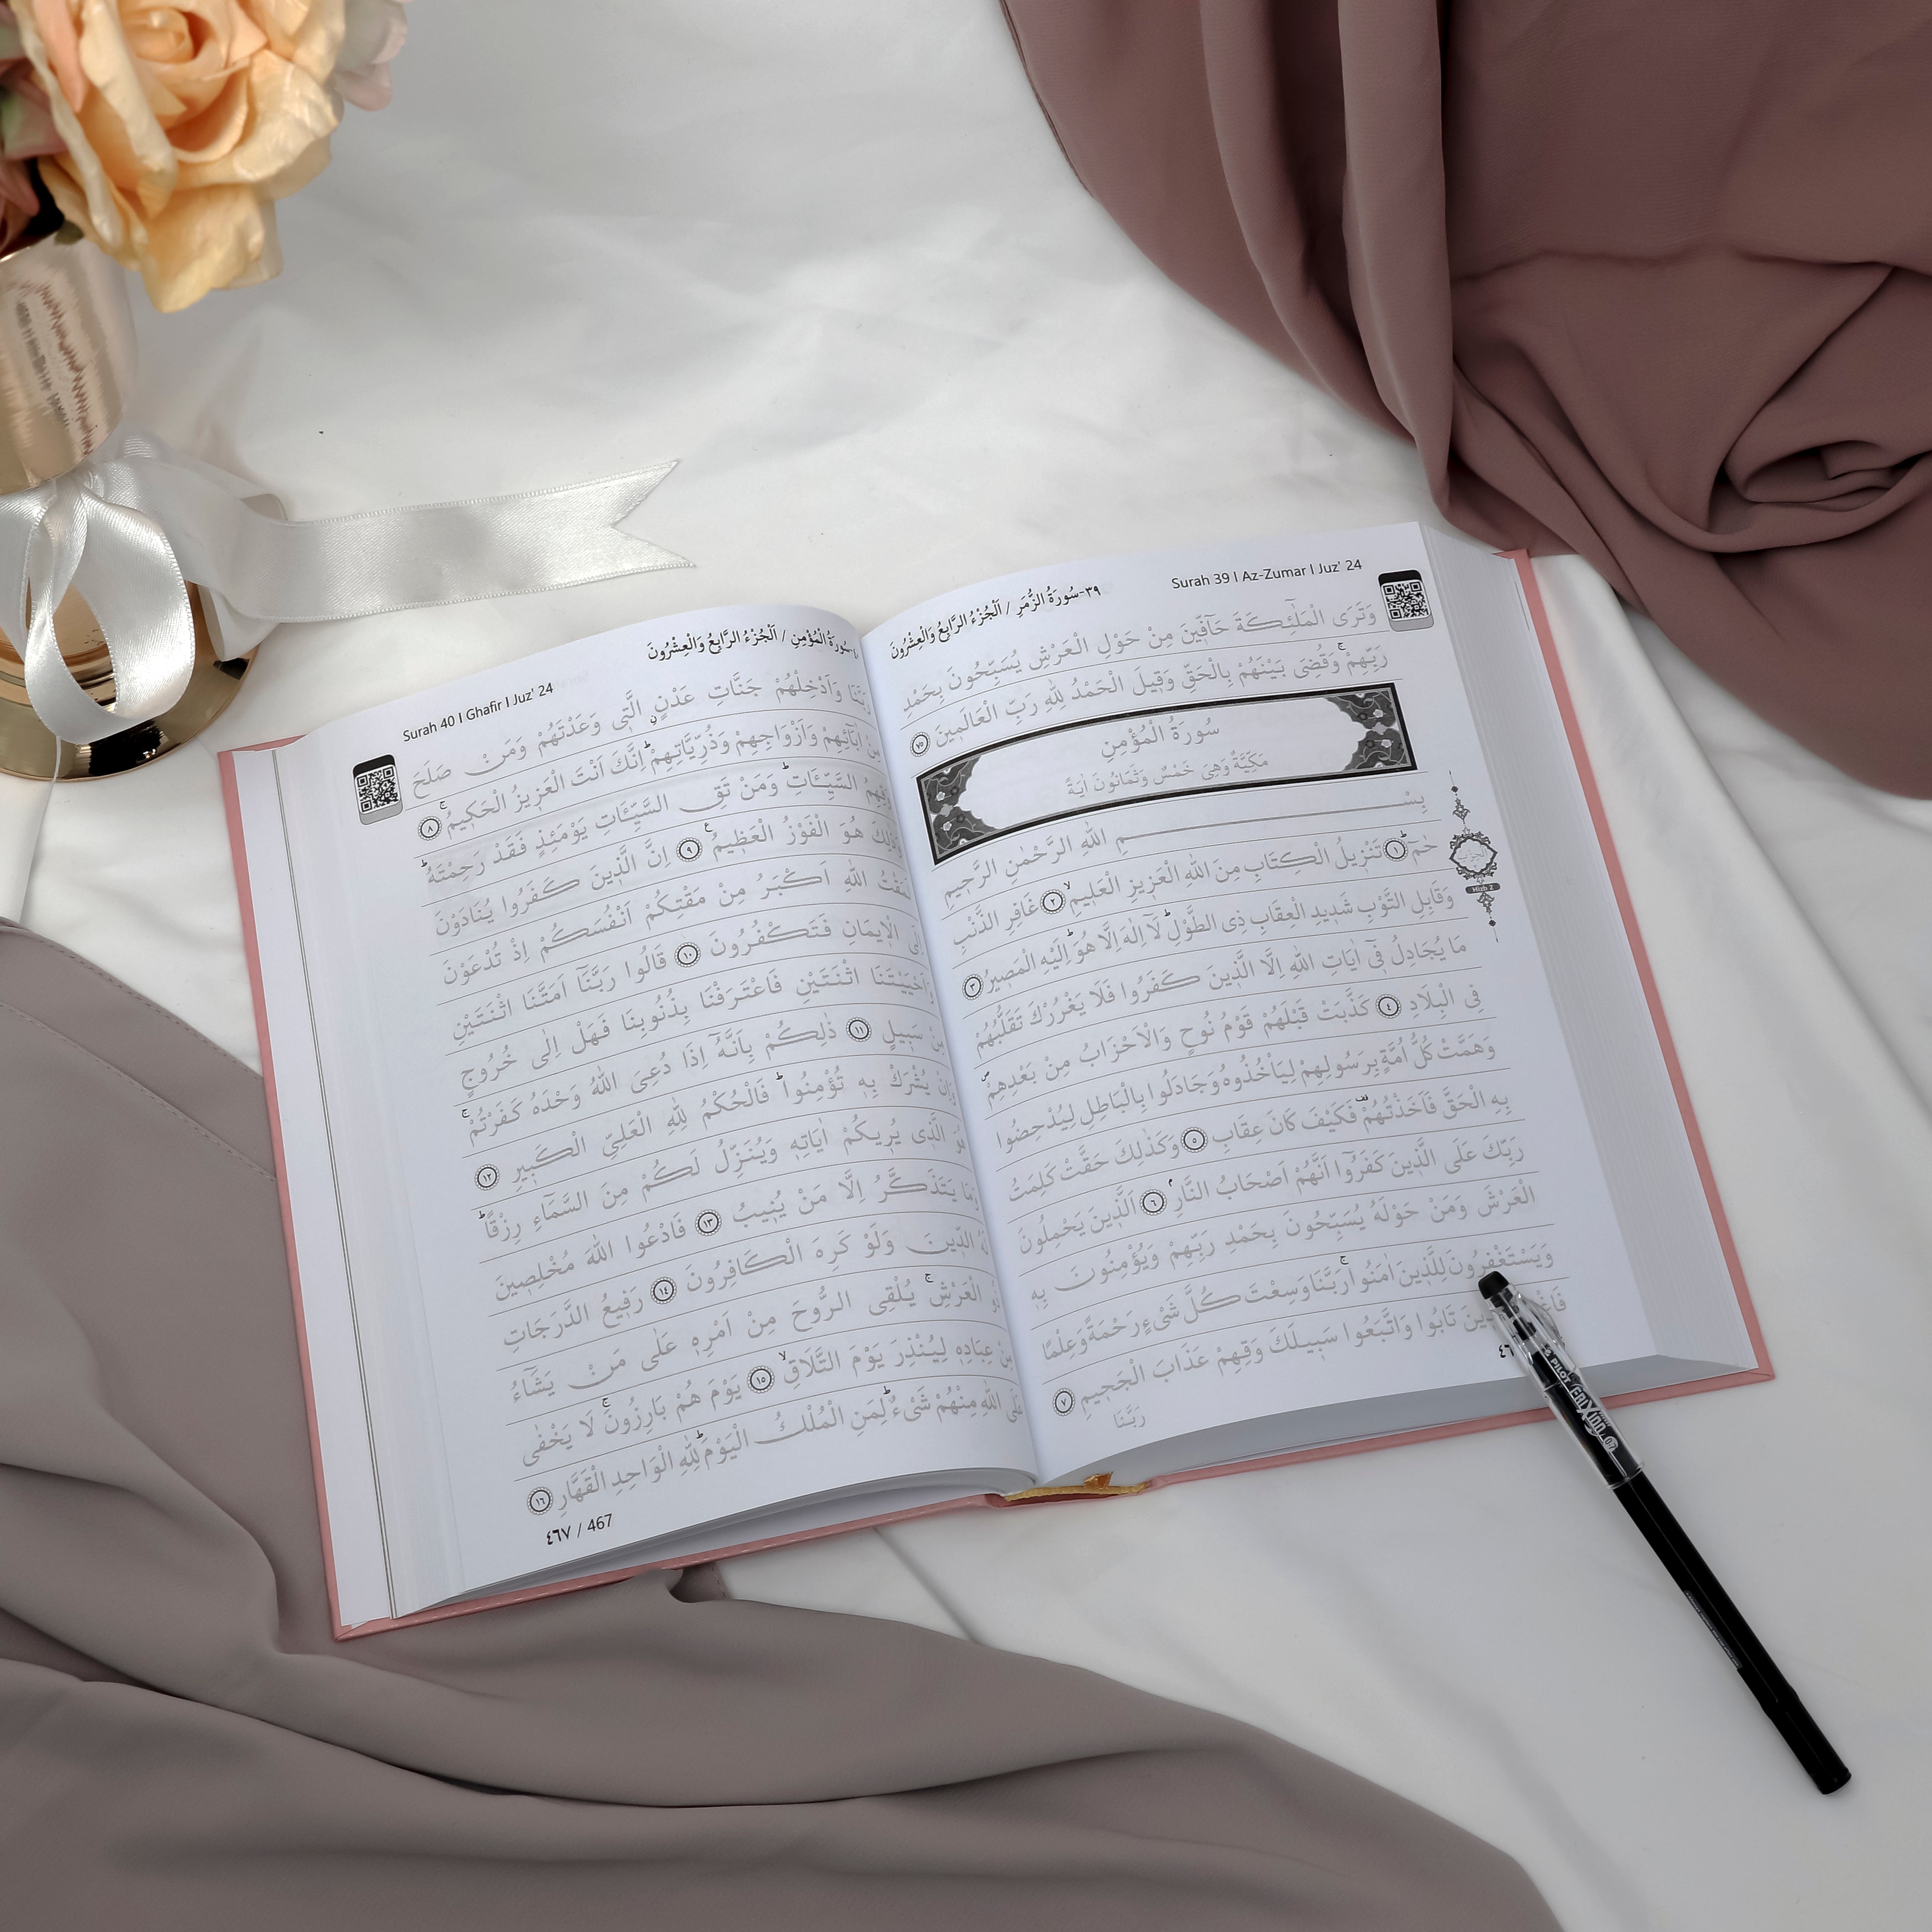 Surah 39 I Az-Zumar I Juz' 24
٣٩-سُورَةُ الزُّمَرِ / اَلْجُزْءُ الرَّابِعُ وَالْعِشْرُونَ
وَتَرَى الْمَلٰٓئِكَةَ حَآفّ۪ينَ مِنْ حَوْلِ الْعَرْشِ يُسَبِّحُونَ بِحَمْدِ
رَبِّهِمْۚ وَقُضِيَ بَيْنَهُمْ بِالْحَقِّ وَق۪يلَ الْحَمْدُ لِلّٰهِ رَبِّ الْعَالَم۪ينَ ﴿٧٥﴾
سُورَةُ الْمُؤْمِنِ
مَكِّيَّةٌ وَهِيَ خَمْسٌ وَثَمَانُونَ اٰيَةً
بِسْــــــــمِ اللهِ الرَّحْمٰنِ الرَّح۪يمِ
حٰمٓۜ ﴿١﴾ تَنْز۪يلُ الْكِتَابِ مِنَ اللهِ الْعَز۪يزِ الْعَل۪يمِۙ ﴿٢﴾ غَافِرِ الذَّنْبِ
وَقَابِلِ التَّوْبِ شَد۪يدِ الْعِقَابِ ذِي الطَّوْلِۜ لَٓا اِلٰهَ اِلَّا هُوَۜ اِلَيْهِ الْمَص۪يرُ ﴿٣﴾
مَا يُجَادِلُ ف۪ٓي اٰيَاتِ اللهِ اِلَّا الَّذ۪ينَ كَفَرُوا فَلَا يَغْرُرْكَ تَقَلُّبُهُمْ
فِي الْبِلَادِ ﴿٤﴾ كَذَّبَتْ قَبْلَهُمْ قَوْمُ نُوحٍ وَالْاَحْزَابُ مِنْ بَعْدِهِمْۖ
وَهَمَّتْ كُلُّ اُمَّةٍ بِرَسُولِهِمْ لِيَأْخُذُوهُ وَجَادَلُوا بِالْبَاطِلِ لِيُدْحِضُوا
بِهِ الْحَقَّ فَاَخَذْتُهُمْ۠ فَكَيْفَ كَانَ عِقَابِ ﴿٥﴾ وَكَذٰلِكَ حَقَّتْ كَلِمَتُ
رَبِّكَ عَلَى الَّذ۪ينَ كَفَرُٓوا اَنَّهُمْ اَصْحَابُ النَّارِۢ ﴿٦﴾ اَلَّذ۪ينَ يَحْمِلُونَ
الْعَرْشَ وَمَنْ حَوْلَهُ يُسَبِّحُونَ بِحَمْدِ رَبِّهِمْ وَيُؤْمِنُونَ بِه۪
وَيَسْتَغْفِرُونَ لِلَّذ۪ينَ اٰمَنُواۚ رَبَّنَا وَسِعْتَ كُلَّ شَيْءٍ رَحْمَةً وَعِلْمًا
تَابُوا وَاتَّبَعُوا سَب۪يلَكَ وَقِهِمْ عَذَابَ الْجَح۪يمِ ﴿٧﴾
رَبَّنَا
Hizb 2
Surah 40 I Ghafir I Juz' 24
سُورَةُ الْمُؤْمِنِ / اَلْجُزْءُ الرَّابِعُ وَالْعِشْرُونَ
رَبَّنَا وَاَدْخِلْهُمْ جَنَّاتِ عَدْنٍۨ الَّت۪ي وَعَدْتَهُمْ وَمَنْ صَلَحَ
مِنْ اٰبَٓائِهِمْ وَاَزْوَاجِهِمْ وَذُرِّيَّاتِهِمْۜ اِنَّكَ اَنْتَ الْعَز۪يزُ الْحَك۪يمُۚ ﴿٨﴾
وَقِهِمُ السَّيِّـَٔاتِۜ وَمَنْ تَقِ السَّيِّـَٔاتِ يَوْمَئِذٍ فَقَدْ رَحِمْتَهُۜ
وَذٰلِكَ هُوَ الْفَوْزُ الْعَظ۪يمُ۟ ﴿٩﴾ اِنَّ الَّذ۪ينَ كَفَرُوا يُنَادَوْنَ
لَمَقْتُ اللهِ اَكْبَرُ مِنْ مَقْتِكُمْ اَنْفُسَكُمْ اِذْ تُدْعَوْنَ
اِلَى الْا۪يمَانِ فَتَكْفُرُونَ ﴿١٠﴾ قَالُوا رَبَّنَٓا اَمَتَّنَا اثْنَتَيْنِ
وَاَحْيَيْتَنَا اثْنَتَيْنِ فَاعْتَرَفْنَا بِذُنُوبِنَا فَهَلْ اِلٰى خُرُوجٍ
مِنْ سَب۪يلٍ ﴿١١﴾ ذٰلِكُمْ بِاَنَّهُٓ اِذَا دُعِيَ اللهُ وَحْدَهُ كَفَرْتُمْۚ
وَاِنْ يُشْرَكْ بِه۪ تُؤْمِنُواۜ فَالْحُكْمُ لِلّٰهِ الْعَلِيِّ الْكَب۪يرِ ﴿١٢﴾
هُوَ الَّذ۪ي يُر۪يكُمْ اٰيَاتِه۪ وَيُنَزِّلُ لَكُمْ مِنَ السَّمَٓاءِ رِزْقًاۜ
وَمَا يَتَذَكَّرُ اِلَّا مَنْ يُن۪يبُ ﴿١٣﴾ فَادْعُوا اللهَ مُخْلِص۪ينَ
لَهُ الدّ۪ينَ وَلَوْ كَرِهَ الْكَافِرُونَ ﴿١٤﴾ رَف۪يعُ الدَّرَجَاتِ
ذُو الْعَرْشِۚ يُلْقِي الرُّوحَ مِنْ اَمْرِه۪ عَلٰى مَنْ يَشَٓاءُ
مِنْ عِبَادِه۪ لِيُنْذِرَ يَوْمَ التَّلَاقِۙ ﴿١٥﴾ يَوْمَ هُمْ بَارِزُونَۚ لَا يَخْفٰى
عَلَى اللهِ مِنْهُمْ شَيْءٌۜ لِمَنِ الْمُلْكُ الْيَوْمَۜ لِلّٰهِ الْوَاحِدِ الْقَهَّارِ ﴿١٦﴾
٤٦٧ / 467
PILOT FRIXION 07